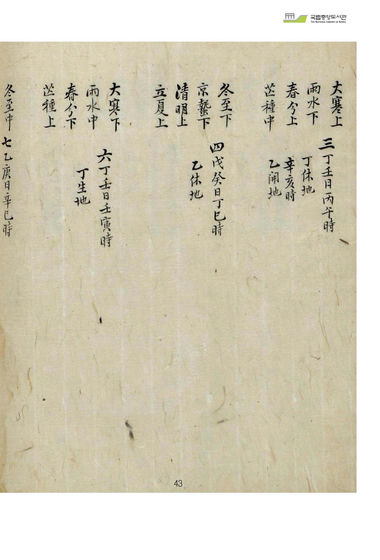 국립중앙도서관
大寒上
雨水下
春分上
芒種中
三 丁壬日丙午時
丁休地
辛亥時
乙開地
冬至下
京蟄下
清明上
立夏上
四 戊癸日丁巳時
乙休地
大寒下
雨水中
春分下
芒種上
六 丁壬日壬寅時
丁生地
冬至中
七 乙庚日辛巳時
43